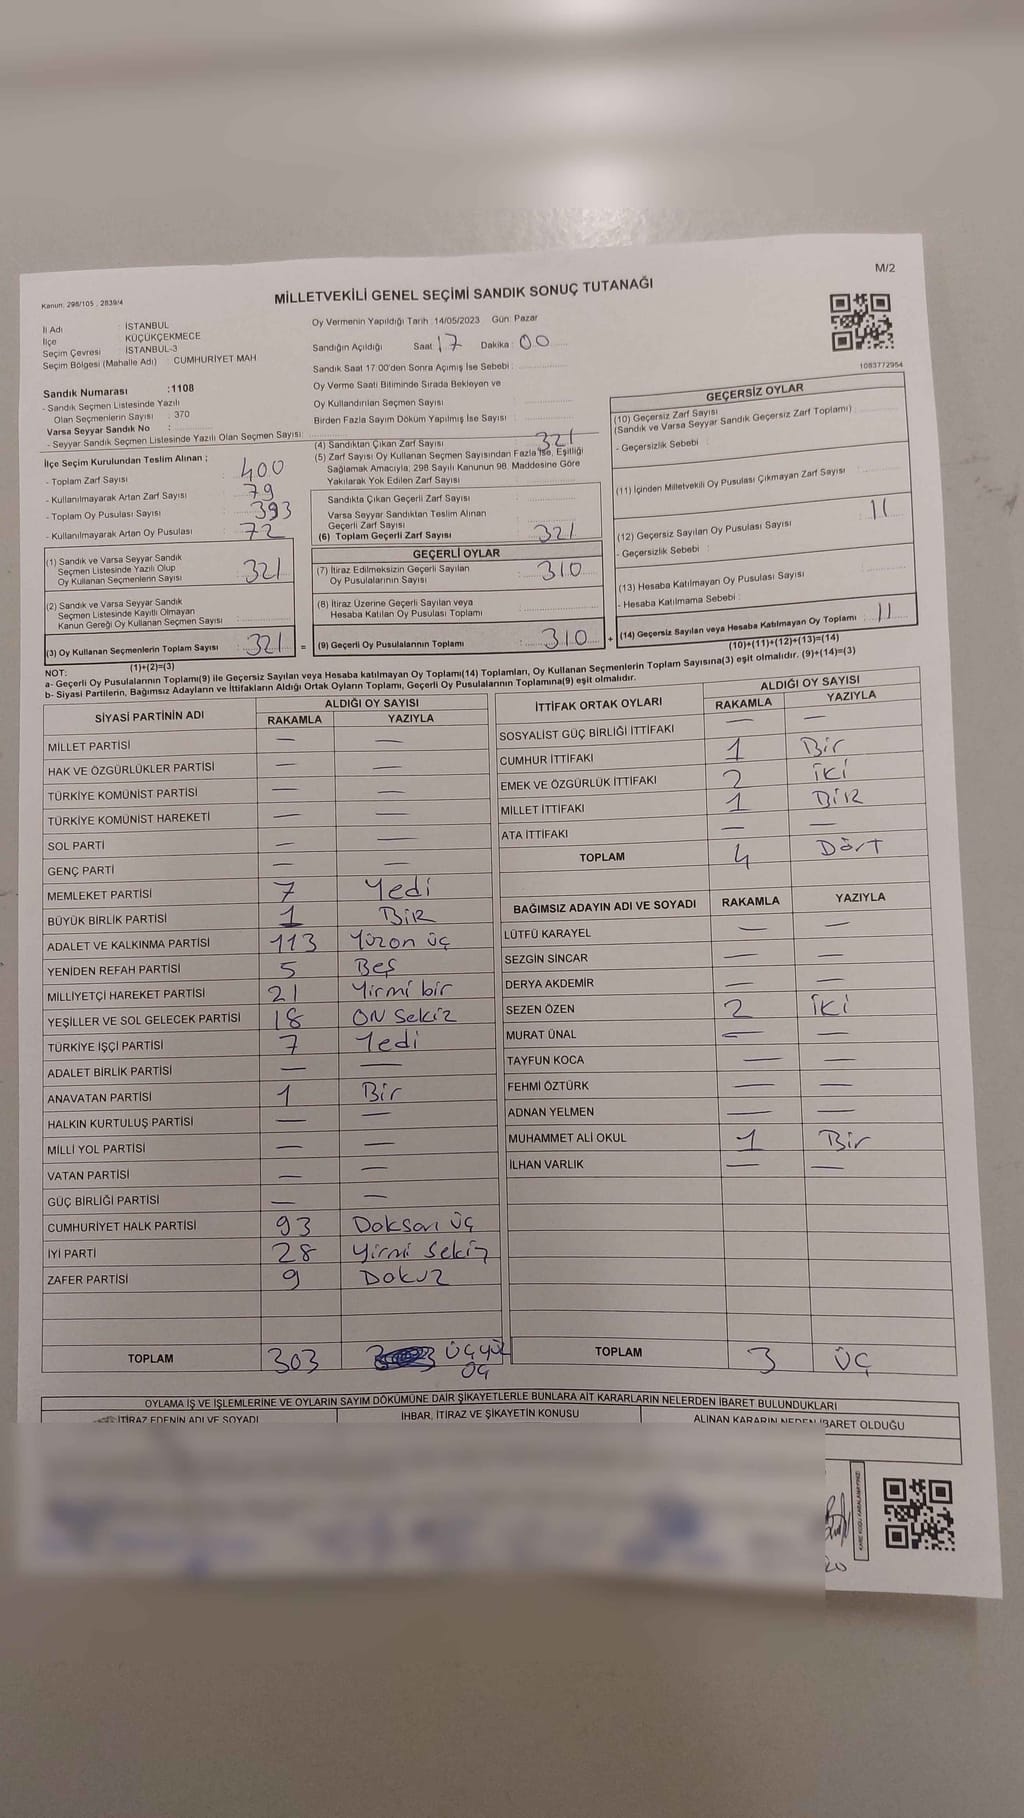 M/2
Kanun: 298/105 , 2839/4
MİLLETVEKİLİ GENEL SEÇİMİ SANDIK SONUÇ TUTANAĞI
1083772954
İl Adı : İSTANBUL
İlçe : KÜÇÜKÇEKMECE
Seçim Çevresi : İSTANBUL-3
Seçim Bölgesi (Mahalle Adı) : CUMHURİYET MAH
Sandık Numarası :1108
- Sandık Seçmen Listesinde Yazılı
Olan Seçmenlerin Sayısı : 370
Varsa Seyyar Sandık No :
- Seyyar Sandık Seçmen Listesinde Yazılı Olan Seçmen Sayısı:
İlçe Seçim Kurulundan Teslim Alınan ;
- Toplam Zarf Sayısı 400
- Kullanılmayarak Artan Zarf Sayısı 79
- Toplam Oy Pusulası Sayısı 393
- Kullanılmayarak Artan Oy Pusulası 72
(1) Sandık ve Varsa Seyyar Sandık
Seçmen Listesinde Yazılı Olup
Oy Kullanan Seçmenlerin Sayısı 321
(2) Sandık ve Varsa Seyyar Sandık
Seçmen Listesinde Kayıtlı Olmayan
Kanun Gereği Oy Kullanan Seçmen Sayısı
(3) Oy Kullanan Seçmenlerin Toplam Sayısı 321 =
(1)+(2)=(3)
Oy Vermenin Yapıldığı Tarih :14/05/2023 Gün: Pazar
Sandığın Açıldığı Saat : 17 Dakika : 00
Sandık Saat 17.00'den Sonra Açımış İse Sebebi :
Oy Verme Saati Bitiminde Sırada Bekleyen ve
Oy Kullandırılan Seçmen Sayısı :
Birden Fazla Sayım Döküm Yapılmış İse Sayısı :
(4) Sandıktan Çıkan Zarf Sayısı 321
(5) Zarf Sayısı Oy Kullanan Seçmen Sayısından Fazla İse, Eşitliği
Sağlamak Amacıyla, 298 Sayılı Kanunun 98. Maddesine Göre
Yakılarak Yok Edilen Zarf Sayısı
Sandıkta Çıkan Geçerli Zarf Sayısı
Varsa Seyyar Sandıktan Teslim Alınan
Geçerli Zarf Sayısı
(6) Toplam Geçerli Zarf Sayısı 321
GEÇERLİ OYLAR
(7) İtiraz Edilmeksizin Geçerli Sayılan
Oy Pusulalarının Sayısı 310
(8) İtiraz Üzerine Geçerli Sayılan veya
Hesaba Katılan Oy Pusulası Toplamı
(9) Geçerli Oy Pusulalarının Toplamı 310 +
GEÇERSİZ OYLAR
(10) Geçersiz Zarf Sayısı
(Sandık ve Varsa Seyyar Sandık Geçersiz Zarf Toplamı)
- Geçersizlik Sebebi :
(11) İçinden Milletvekili Oy Pusulası Çıkmayan Zarf Sayısı
(12) Geçersiz Sayılan Oy Pusulası Sayısı 11
- Geçersizlik Sebebi :
(13) Hesaba Katılmayan Oy Pusulası Sayısı
- Hesaba Katılmama Sebebi :
(14) Geçersiz Sayılan veya Hesaba Katılmayan Oy Toplamı 11
(10)+(11)+(12)+(13)=(14)
NOT:
a- Geçerli Oy Pusulalarının Toplamı(9) ile Geçersiz Sayılan veya Hesaba katılmayan Oy Toplamı(14) Toplamları, Oy Kullanan Seçmenlerin Toplam Sayısına(3) eşit olmalıdır. (9)+(14)=(3)
b- Siyasi Partilerin, Bağımsız Adayların ve İttifakların Aldığı Ortak Oyların Toplamı, Geçerli Oy Pusulalarının Toplamına(9) eşit olmalıdır.
SİYASİ PARTİNİN ADI ALDIĞI OY SAYISI
RAKAMLA YAZIYLA
MİLLET PARTİSİ — —
HAK VE ÖZGÜRLÜKLER PARTİSİ — —
TÜRKİYE KOMÜNİST PARTİSİ — —
TÜRKİYE KOMÜNİST HAREKETİ — —
SOL PARTİ — —
GENÇ PARTİ — —
MEMLEKET PARTİSİ 7 Yedi
BÜYÜK BİRLİK PARTİSİ 1 BİR
ADALET VE KALKINMA PARTİSİ 113 Yüzon üç
YENİDEN REFAH PARTİSİ 5 Beş
MİLLİYETÇİ HAREKET PARTİSİ 21 Yirmi bir
YEŞİLLER VE SOL GELECEK PARTİSİ 18 ON Sekiz
TÜRKİYE İŞÇİ PARTİSİ 7 Yedi
ADALET BİRLİK PARTİSİ — —
ANAVATAN PARTİSİ 1 Bir
HALKIN KURTULUŞ PARTİSİ — —
MİLLİ YOL PARTİSİ — —
VATAN PARTİSİ — —
GÜÇ BİRLİĞİ PARTİSİ — —
CUMHURİYET HALK PARTİSİ 93 Doksan üç
İYİ PARTİ 28 Yirmi Sekiz
ZAFER PARTİSİ 9 Dokuz
TOPLAM 303 üçyüz
üç
İTTİFAK ORTAK OYLARI ALDIĞI OY SAYISI
RAKAMLA YAZIYLA
SOSYALİST GÜÇ BİRLİĞİ İTTİFAKI — —
CUMHUR İTTİFAKI 1 Bir
EMEK VE ÖZGÜRLÜK İTTİFAKI 2 İki
MİLLET İTTİFAKI 1 BİR
ATA İTTİFAKI — —
TOPLAM 4 Dört
BAĞIMSIZ ADAYIN ADI VE SOYADI RAKAMLA YAZIYLA
LÜTFÜ KARAYEL — —
SEZGİN SİNCAR — —
DERYA AKDEMİR — —
SEZEN ÖZEN 2 İki
MURAT ÜNAL — —
TAYFUN KOCA — —
FEHMİ ÖZTÜRK — —
ADNAN YELMEN — —
MUHAMMET ALİ OKUL 1 Bir
İLHAN VARLIK — —
TOPLAM 3 ÜÇ
OYLAMA İŞ VE İŞLEMLERİNE VE OYLARIN SAYIM DÖKÜMÜNE DAİR ŞİKAYETLERLE BUNLARA AİT KARARLARIN NELERDEN İBARET BULUNDUKLARI
İTİRAZ EDENİN ADI VE SOYADI İHBAR, İTİRAZ VE ŞİKAYETİN KONUSU ALINAN KARARIN NEDEN İBARET OLDUĞU